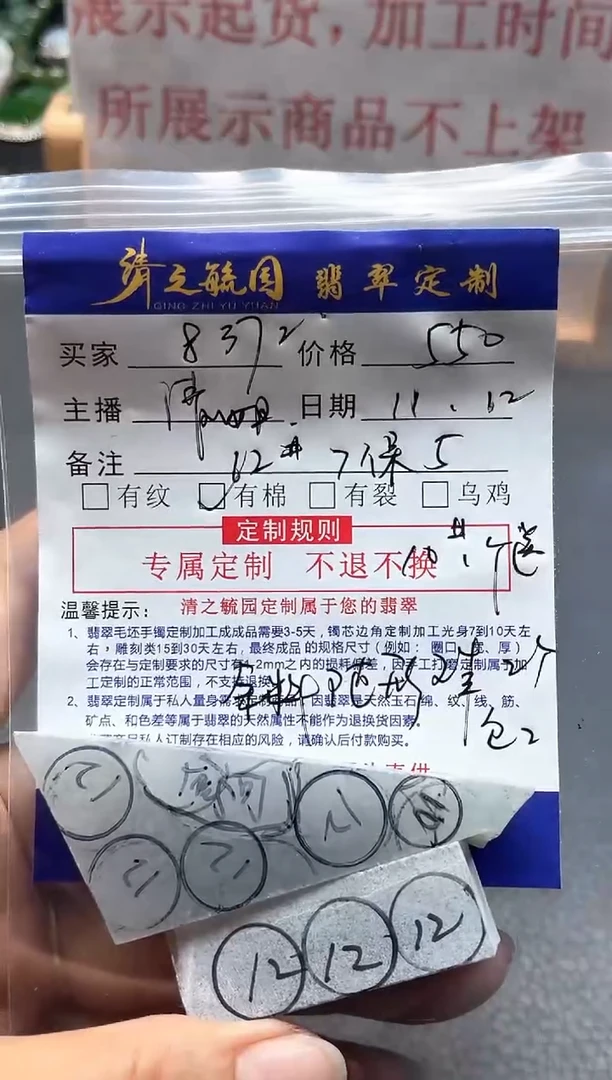 展示起货，加工时间
所展示商品不上架
清之毓园 翡翠定制
QING ZHI YU YUAN
买家 8372 价格 550
主播 日期 11.12
备注 12# 7保5
有纹 有棉 有裂 乌鸡
定制规则
专属定制 不退不换
温馨提示： 清之毓园定制属于您的翡翠
1、翡翠毛坯手镯定制加工成成品需要3-5天，镯芯边角定制加工光身7到10天左
右，雕刻类15到30天左右，最终成品的规格尺寸（例如：圈口、宽、厚）
会存在与定制要求的尺寸有1-2mm之内的损耗偏差，因手工打磨定制属于加
工定制的正常范围，不支持退换
2、翡翠定制属于私人量身需求定制商品，因翡翠是天然玉石绵、纹、线、筋、
矿点、和色差等属于翡翠的天然属性不能作为退换货因素
私人订制存在相应的风险，请确认后付款购买。
包2
12 12 12